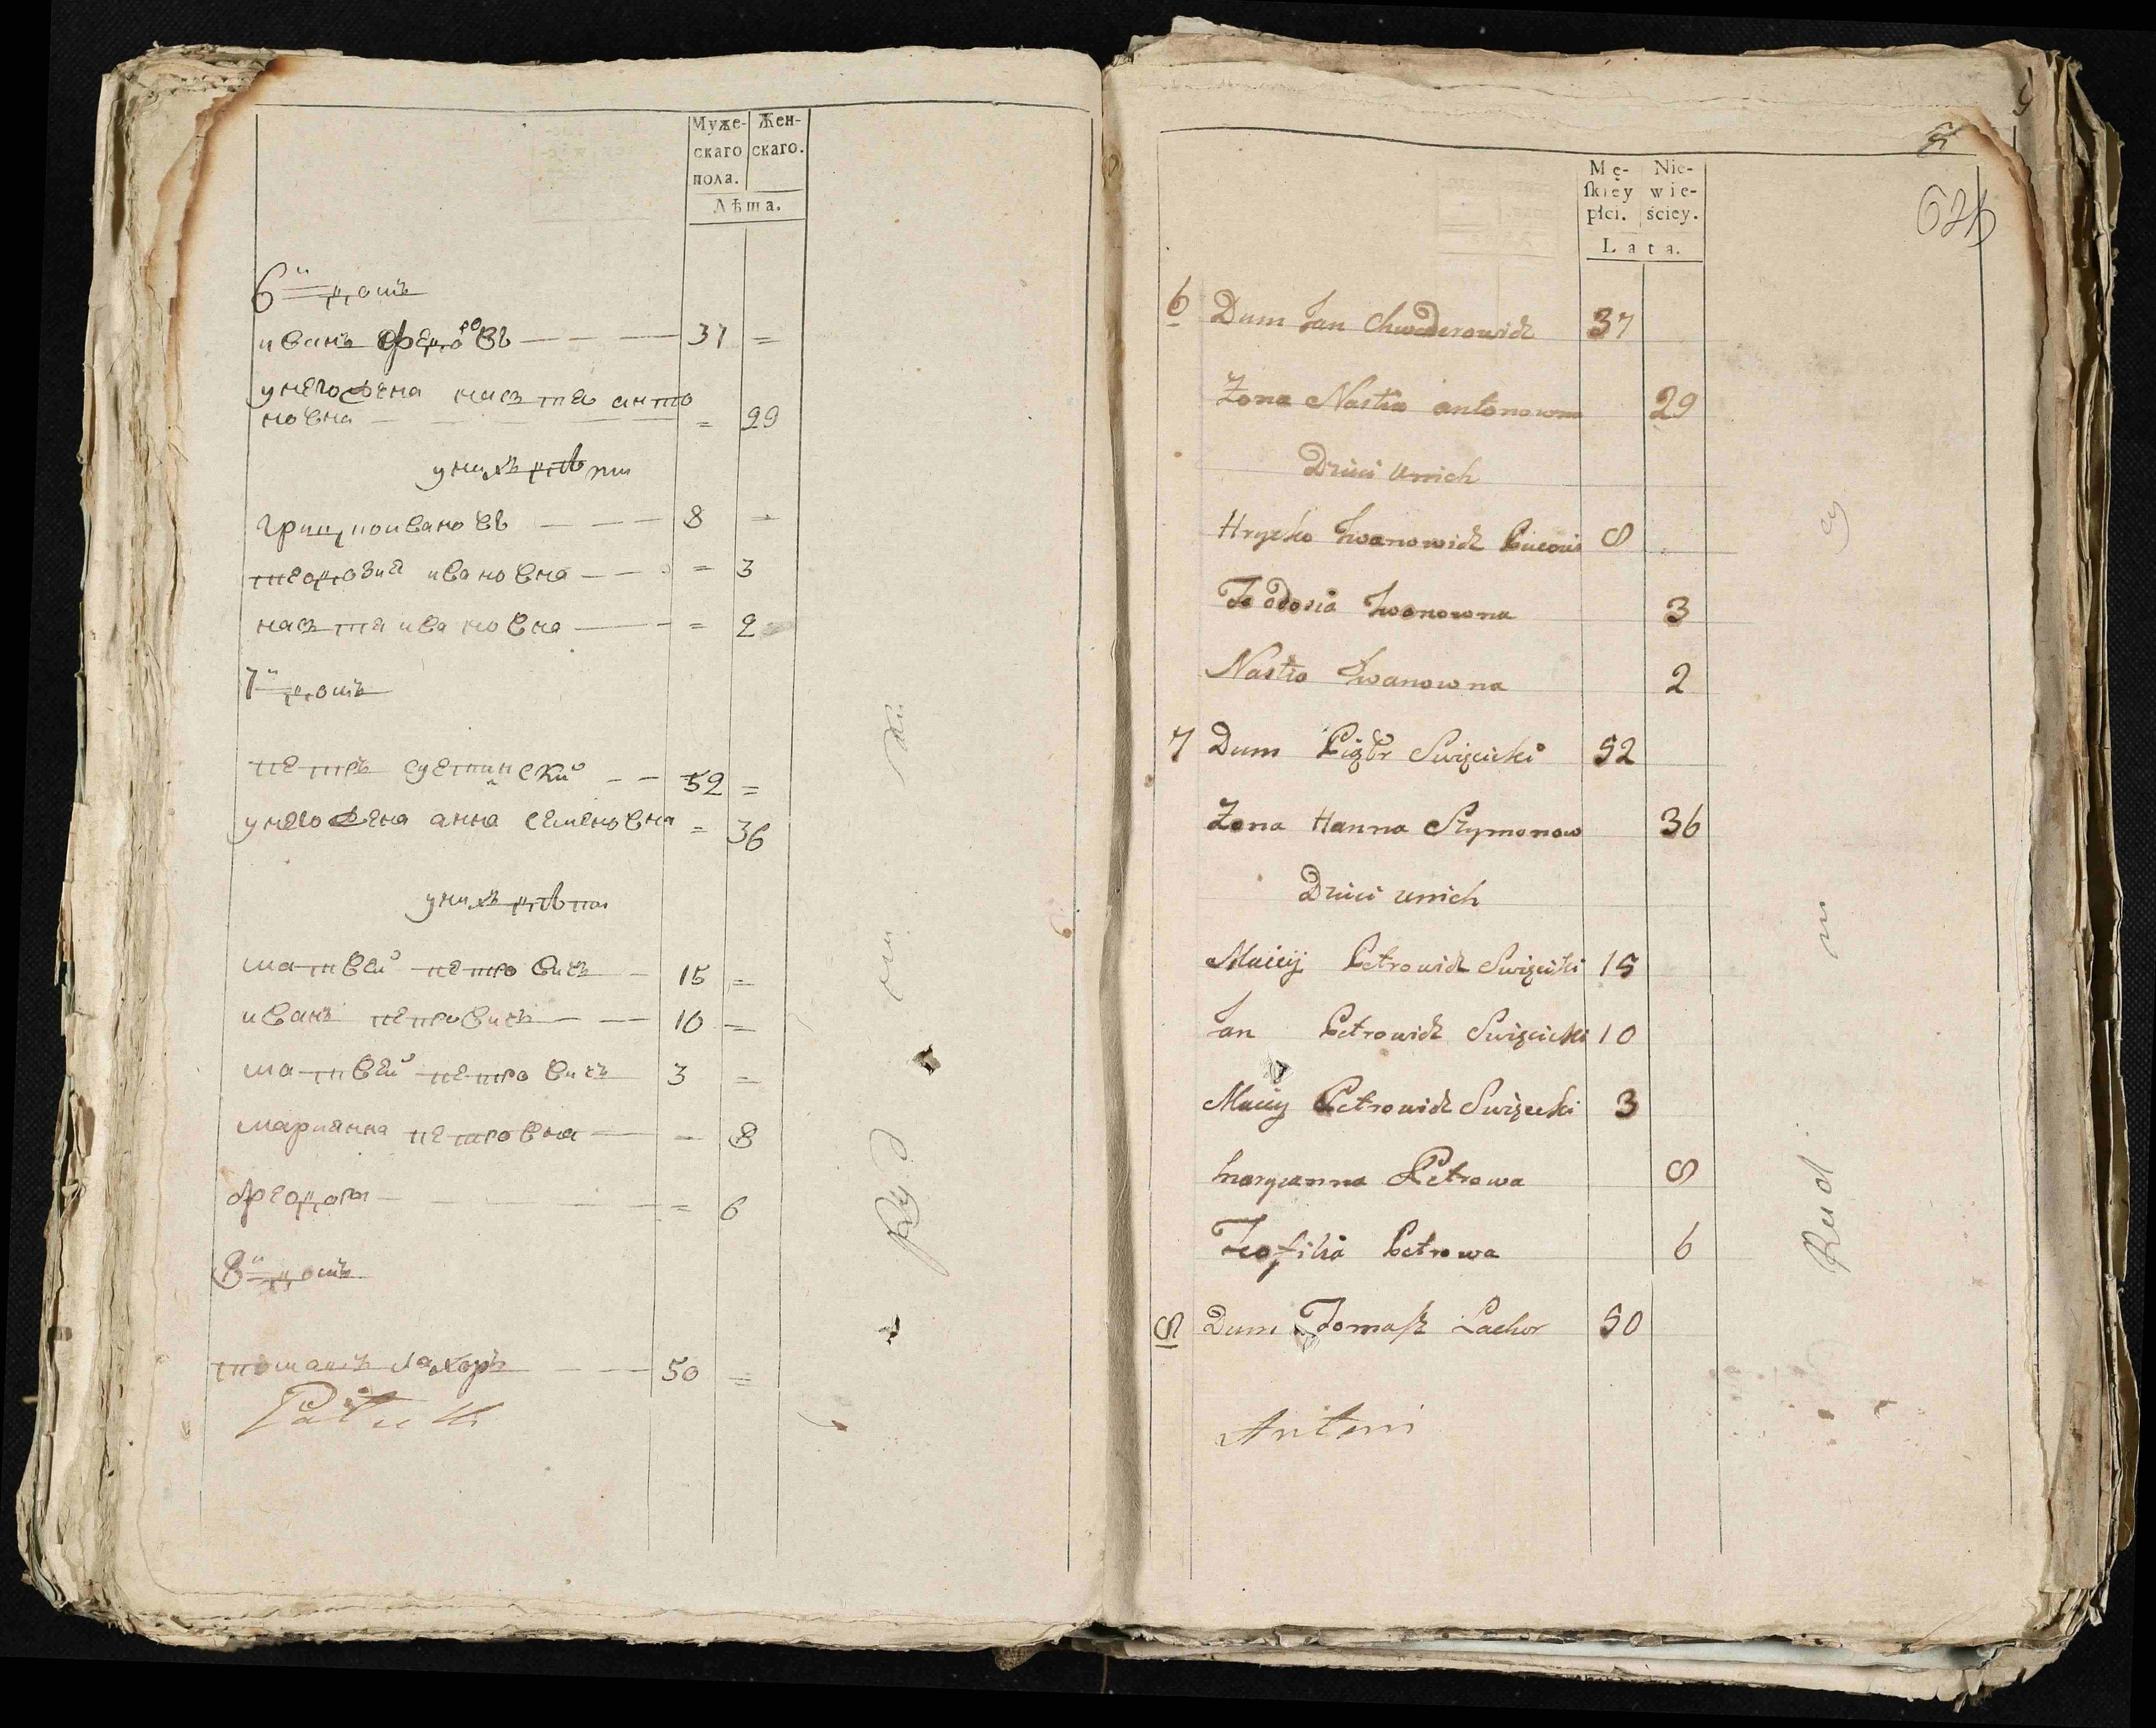 Муже-
скаго
пола.
Жен-
скаго.
Лѣта.
6й домъ
иванъ федоровъ 37 =
унего жена настя анто
новна = 29
унихъ дѣти
грицко ивановъ 8 =
теодозия ивановна = 3
настя ивановна = 2
7й домъ
петръ 52 =
унего жена анна семеновна = 36
унихъ дѣти
матвей петровичъ 15 =
иванъ петровичъ 10 =
матвей петровичъ 3 =
марианна петровна = 8
= 6
8й домъ
томашъ лахоръ 50 =
Mę-
ſkiey
płci.
Nie-
wie-
ściey.
Lata.
6 Dum Jan Chwederowicz 37
Żona Nastia antonowna 29
Dzieci unich
Hryćko Iwanowicz 8
Teodosia Iwanowna 3
Nastia Iwanowna 2
7 Dum Piotr Swięcicki 52
Żona Hanna Szymonow 36
Dzieci unich
Maciej Petrowicz Swięcicki 15
Jan Petrowicz Swięcicki 10
Maciej Petrowicz Swięcicki 3
Maryanna Petrowa 8
Teofilia Petrowa 6
8 Dum Tomaſz Lachor 50
Antoni
Rud